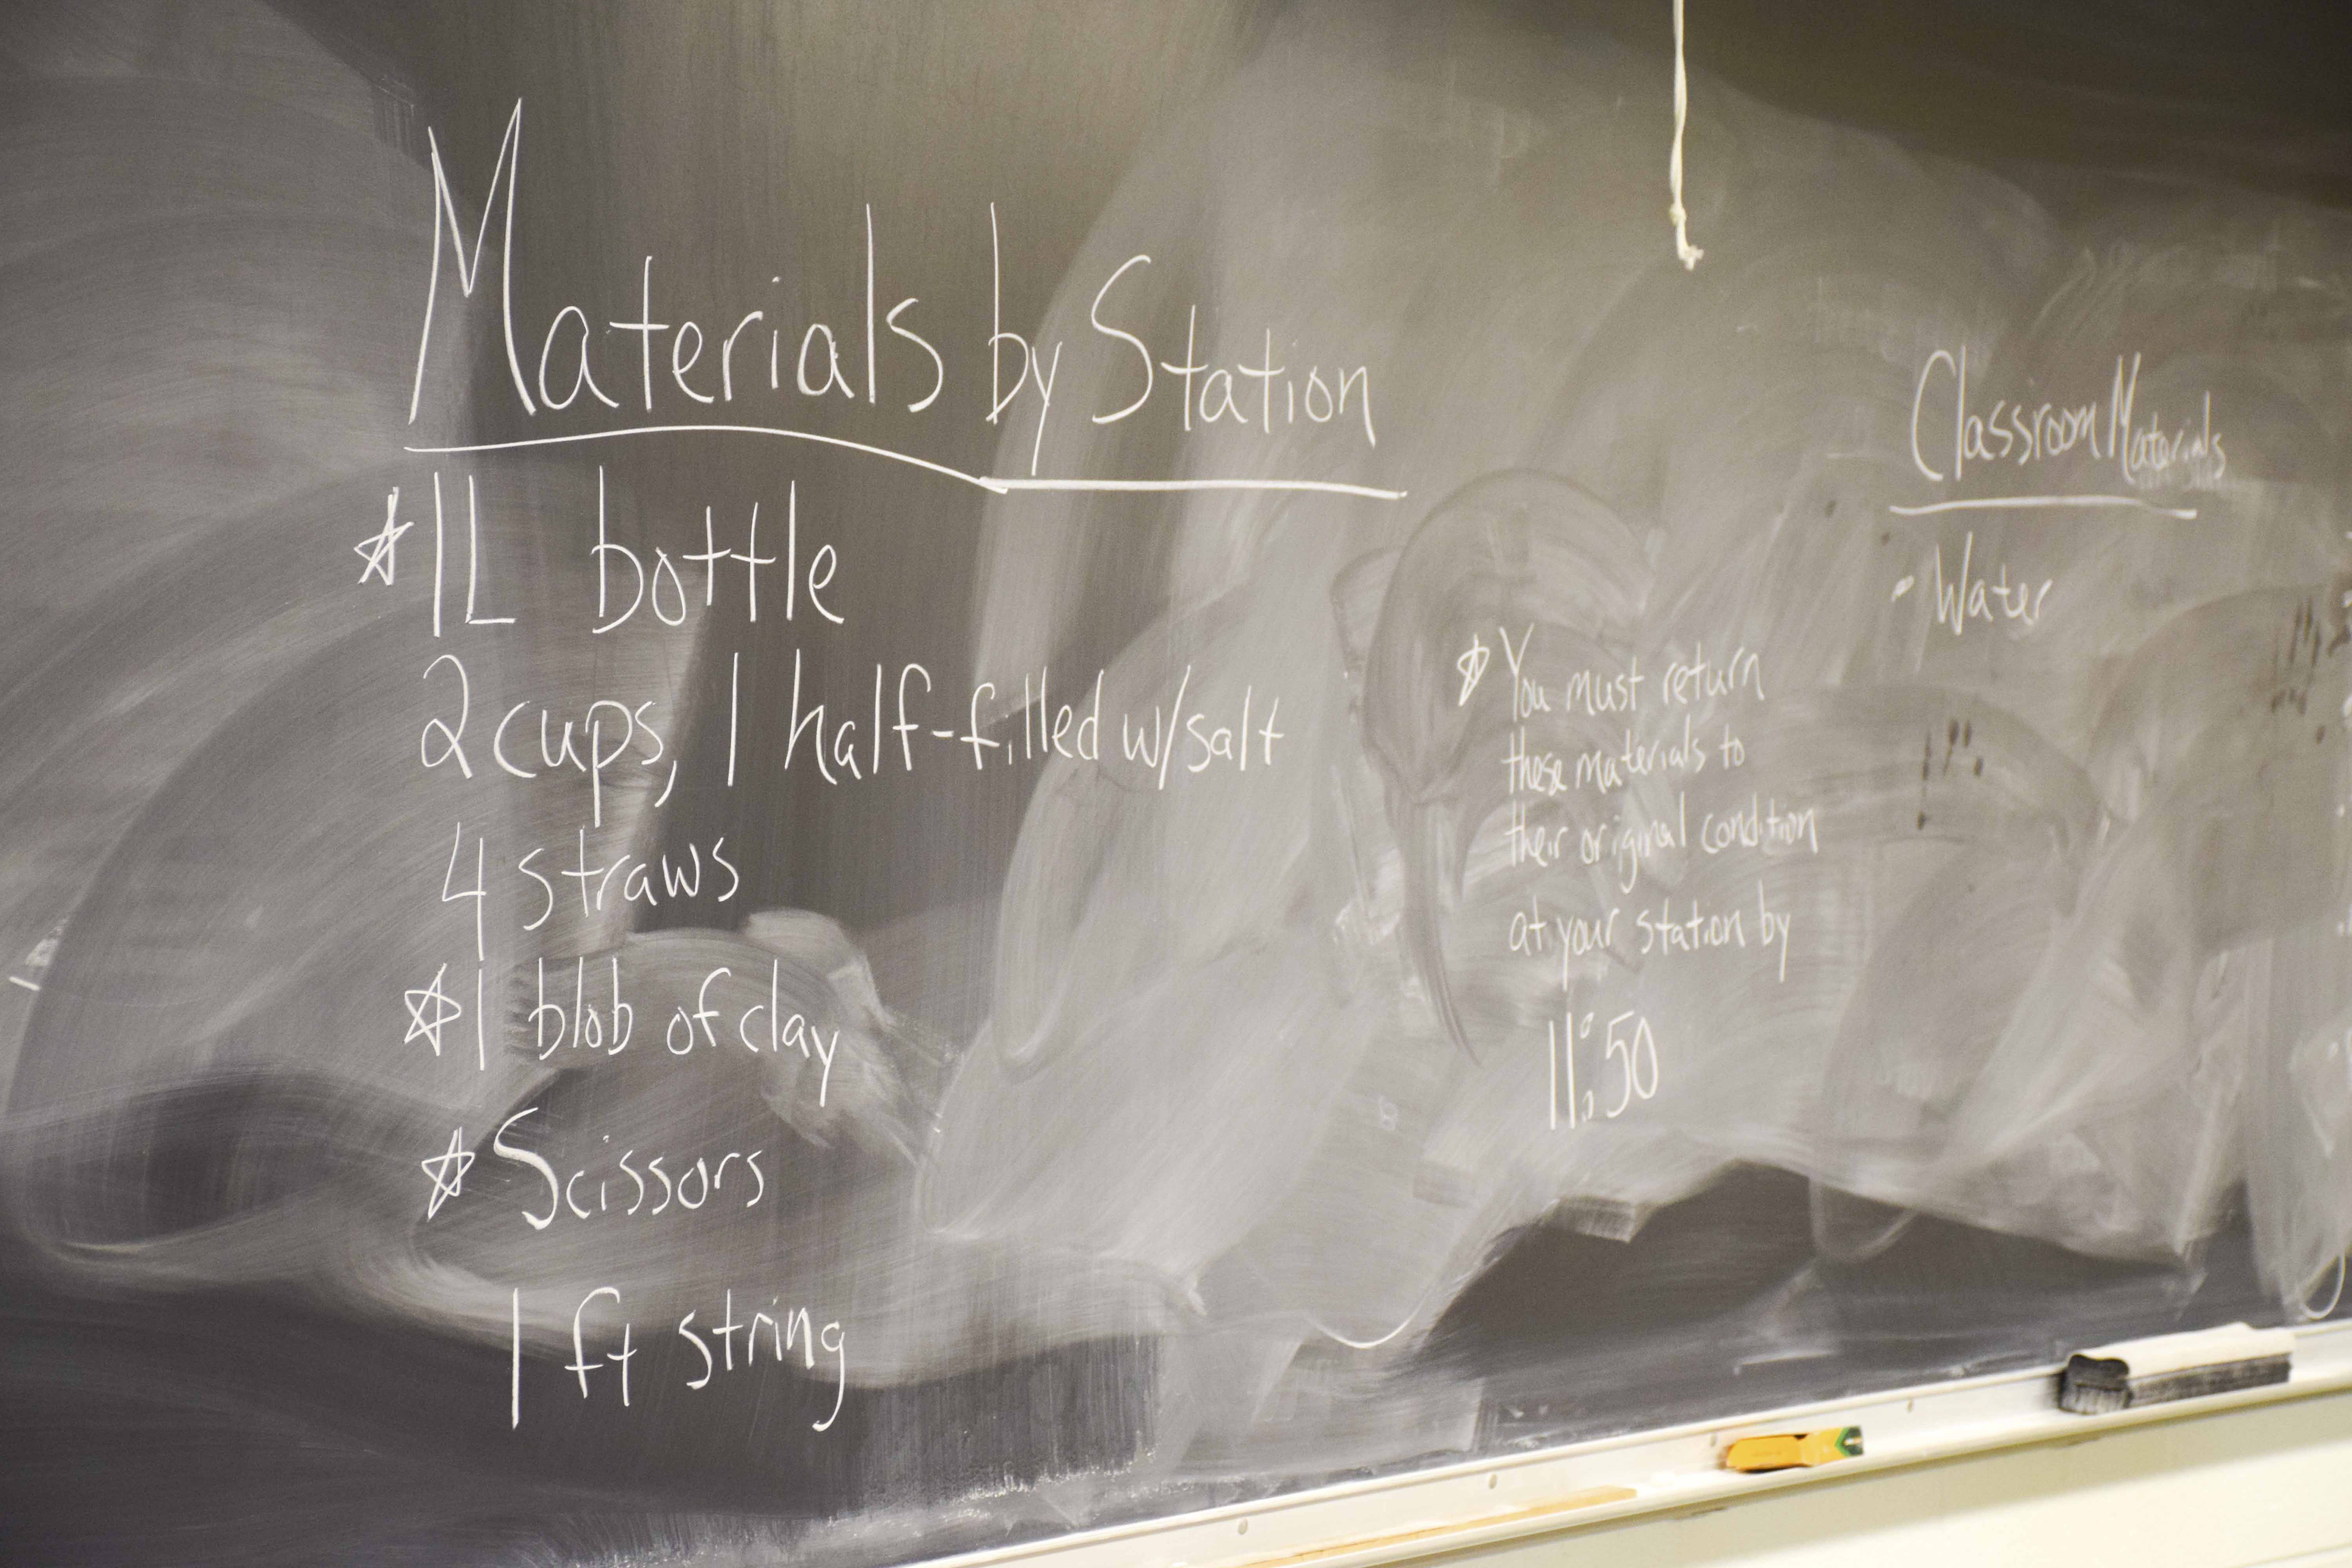 Materials by Station
☆ 1L bottle
2 cups, 1 half-filled w/salt
4 straws
☆ 1 blob of clay
☆ Scissors
1 ft string
☆ You must return
these materials to
their original condition
at your station by
11:50
Classroom Materials
- Water